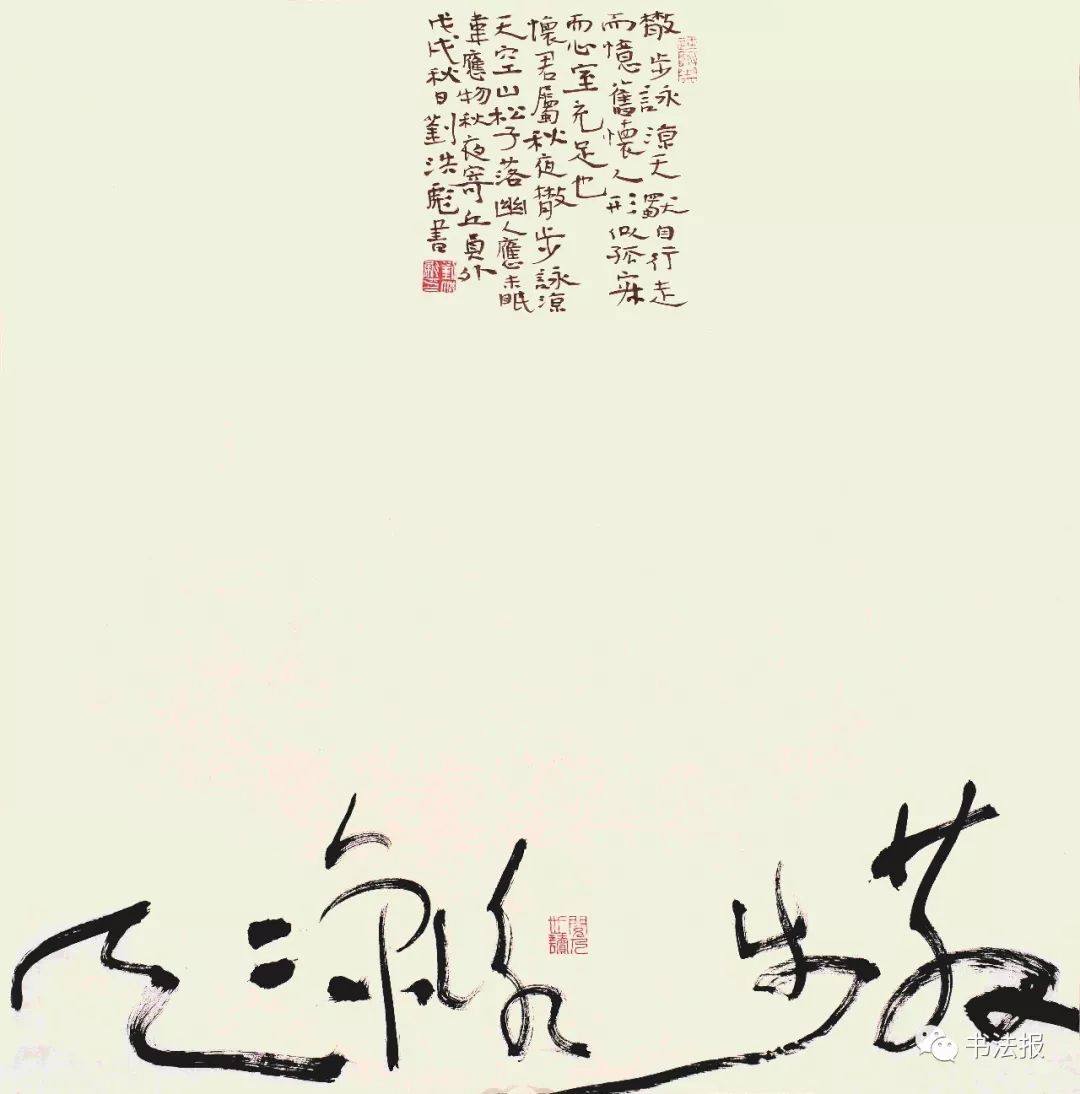 散步詠涼天獨自行走
而憶舊懷人形似孤寂
而心室充足也
懷君屬秋夜散步詠涼
天空山松子落幽人應未眠
韋應物秋夜寄丘員外
戊戌秋日劉浩彪書
散步詠涼天
书法报